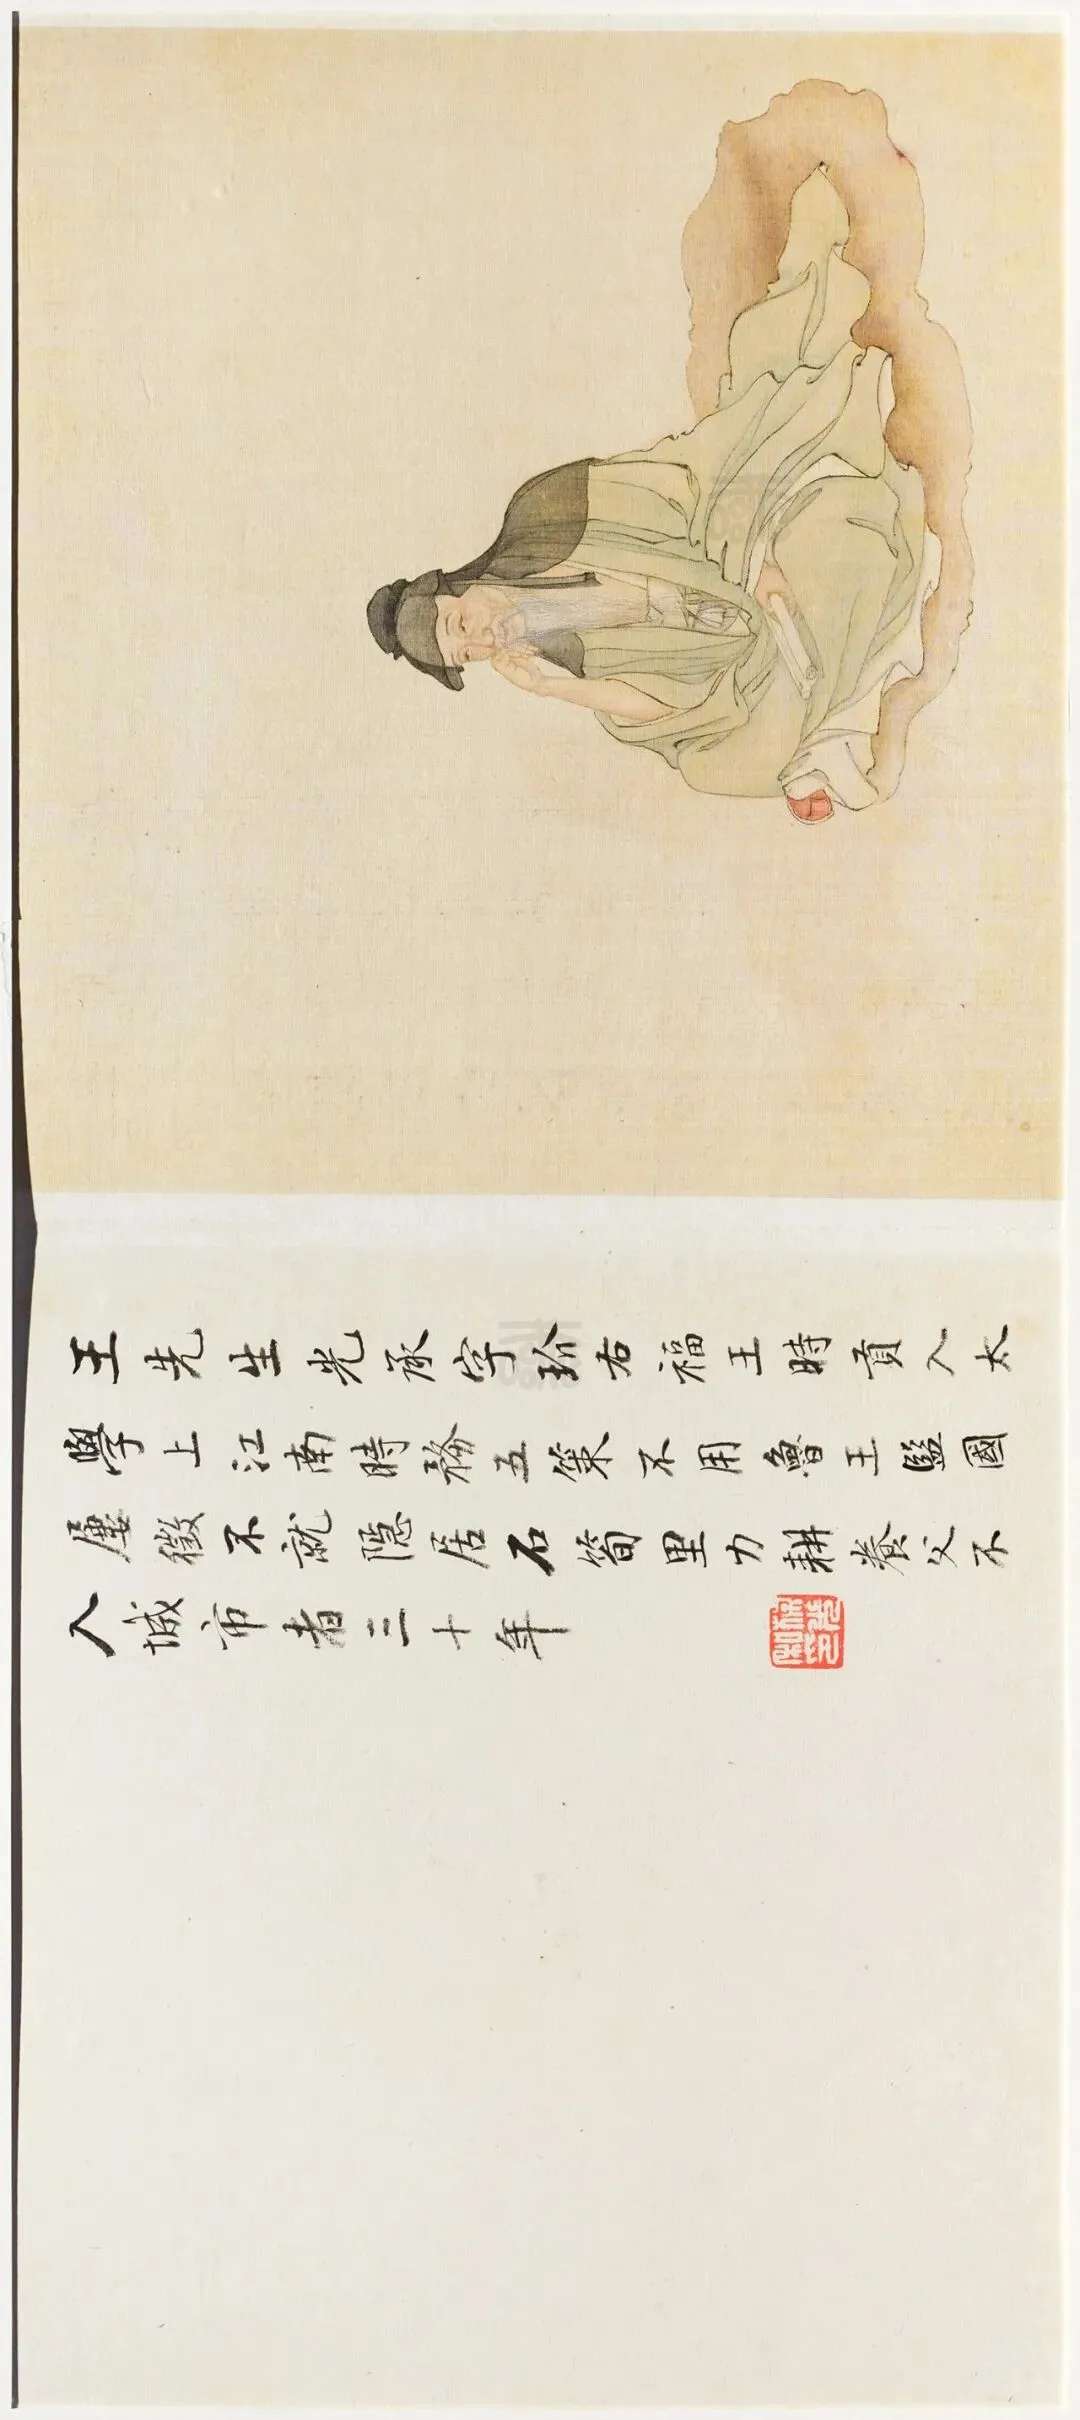 王先生光承字玠右福王時貢入太
學上江南時務五策不用魯王監國
屢徵不就隱居石筍里力耕養父不
入城市者三十年